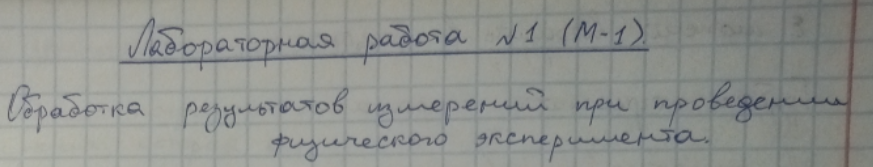 Лабораторная работа №1 (М-1).
Обработка результатов измерений при проведении
физического эксперимента.